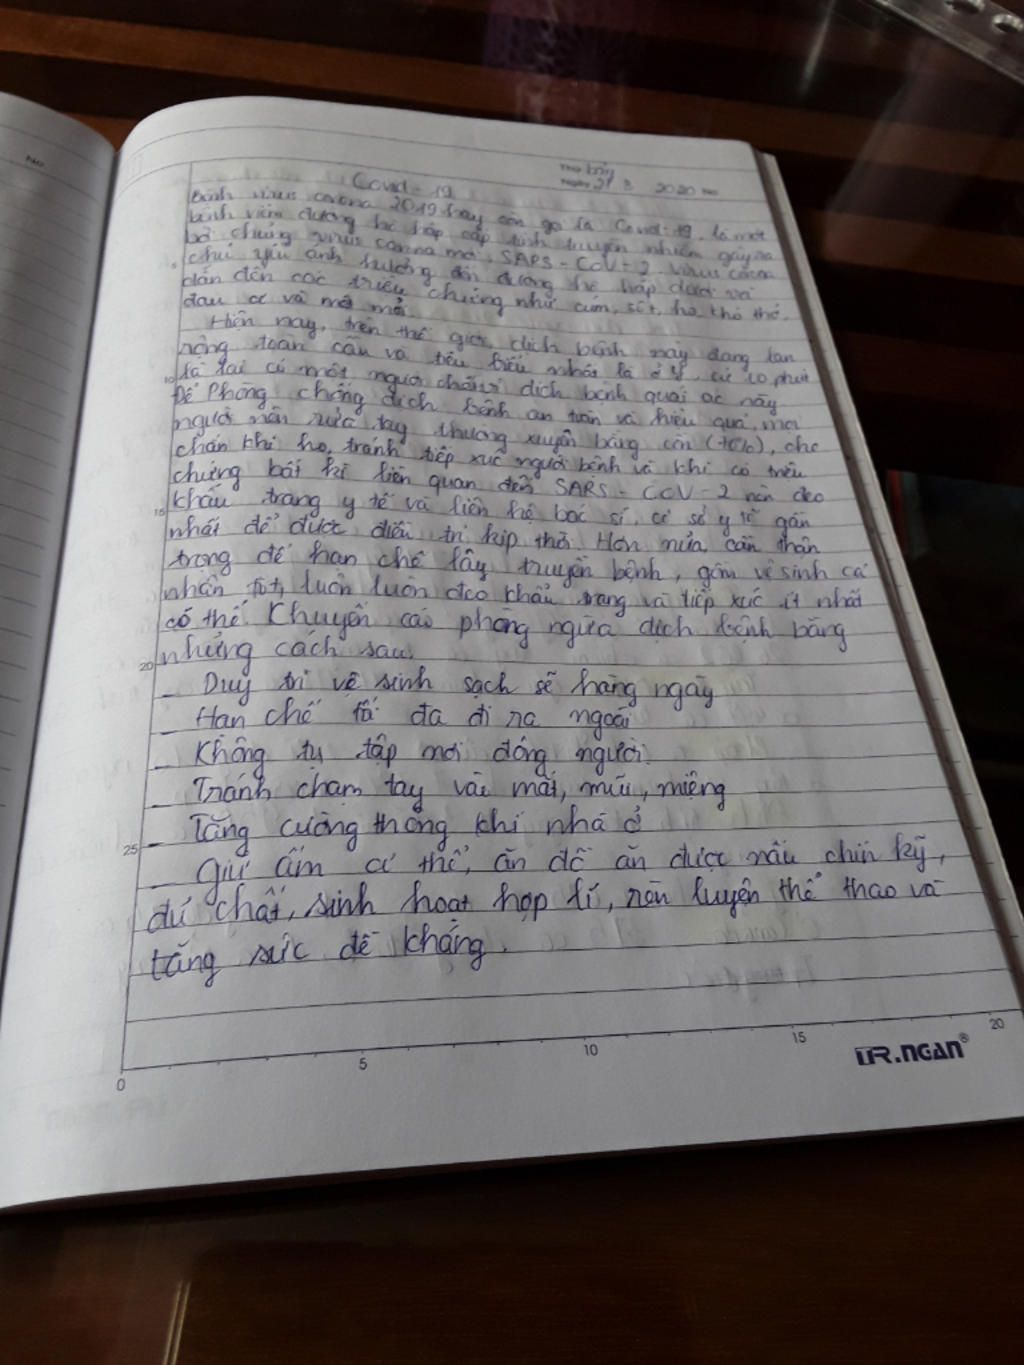 No
Thứ bảy
Ngày 21 3 2020 No
Covid-19
Bệnh virus corona 2019 hay còn gọi là Covid-19, là một
bệnh viêm đường hô hấp cấp tính truyền nhiễm gây ra
bởi chủng virus corona mới, SARS-CoV-2. Virus corona
5 chủ yếu ảnh hưởng đến đường hô hấp dưới và
dẫn đến các triệu chứng như cúm, sốt, ho, khó thở,
đau cơ và mệt mỏi.
Hiện nay, trên thế giới, dịch bệnh này đang lan
rộng toàn cầu và tiêu biểu nhất là ở Ý, cứ 10 phút
10 lại có một người chết vì dịch bệnh quái ác này
Để Phòng chống dịch bệnh an toàn và hiệu quả, mọi
người nên rửa tay thường xuyên bằng cồn (70%), che
chắn khi ho, tránh tiếp xúc người bệnh và khi có triệu
chứng bất kì liên quan đến SARS-CoV-2 nên đeo
15 khẩu trang y tế và liên hệ bác sĩ, cơ sở y tế gần
nhất để được điều trị kịp thời. Hơn nữa, cẩn thận
trọng để hạn chế lây truyền bệnh, gồm vệ sinh cá
nhân tốt, luôn luôn đeo khẩu trang và tiếp xúc ít nhất
có thể. Khuyến cáo phòng ngừa dịch bệnh bằng
20 những cách sau:
- Duy trì vệ sinh sạch sẽ hàng ngày
- Hạn chế tối đa đi ra ngoài
- Không tụ tập nơi đông người.
- Tránh chạm tay vào mắt, mũi, miệng
25 - Tăng cường thông khí nhà ở
- Giữ ấm cơ thể, ăn đồ ăn được nấu chín kỹ,
đủ chất, sinh hoạt hợp lí, rèn luyện thể thao và
tăng sức đề kháng.
0 5 10 15 20
TR.NGAN®